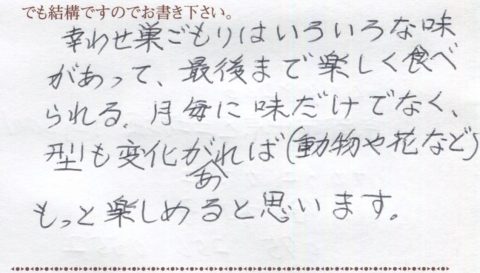 でも結構ですのでお書き下さい。
幸わせ巣ごもりはいろいろな味
があって、最後まで楽しく食べ
られる。月毎に味だけでなく、
型も変化があれば(動物や花など)
もっと楽しめると思います。